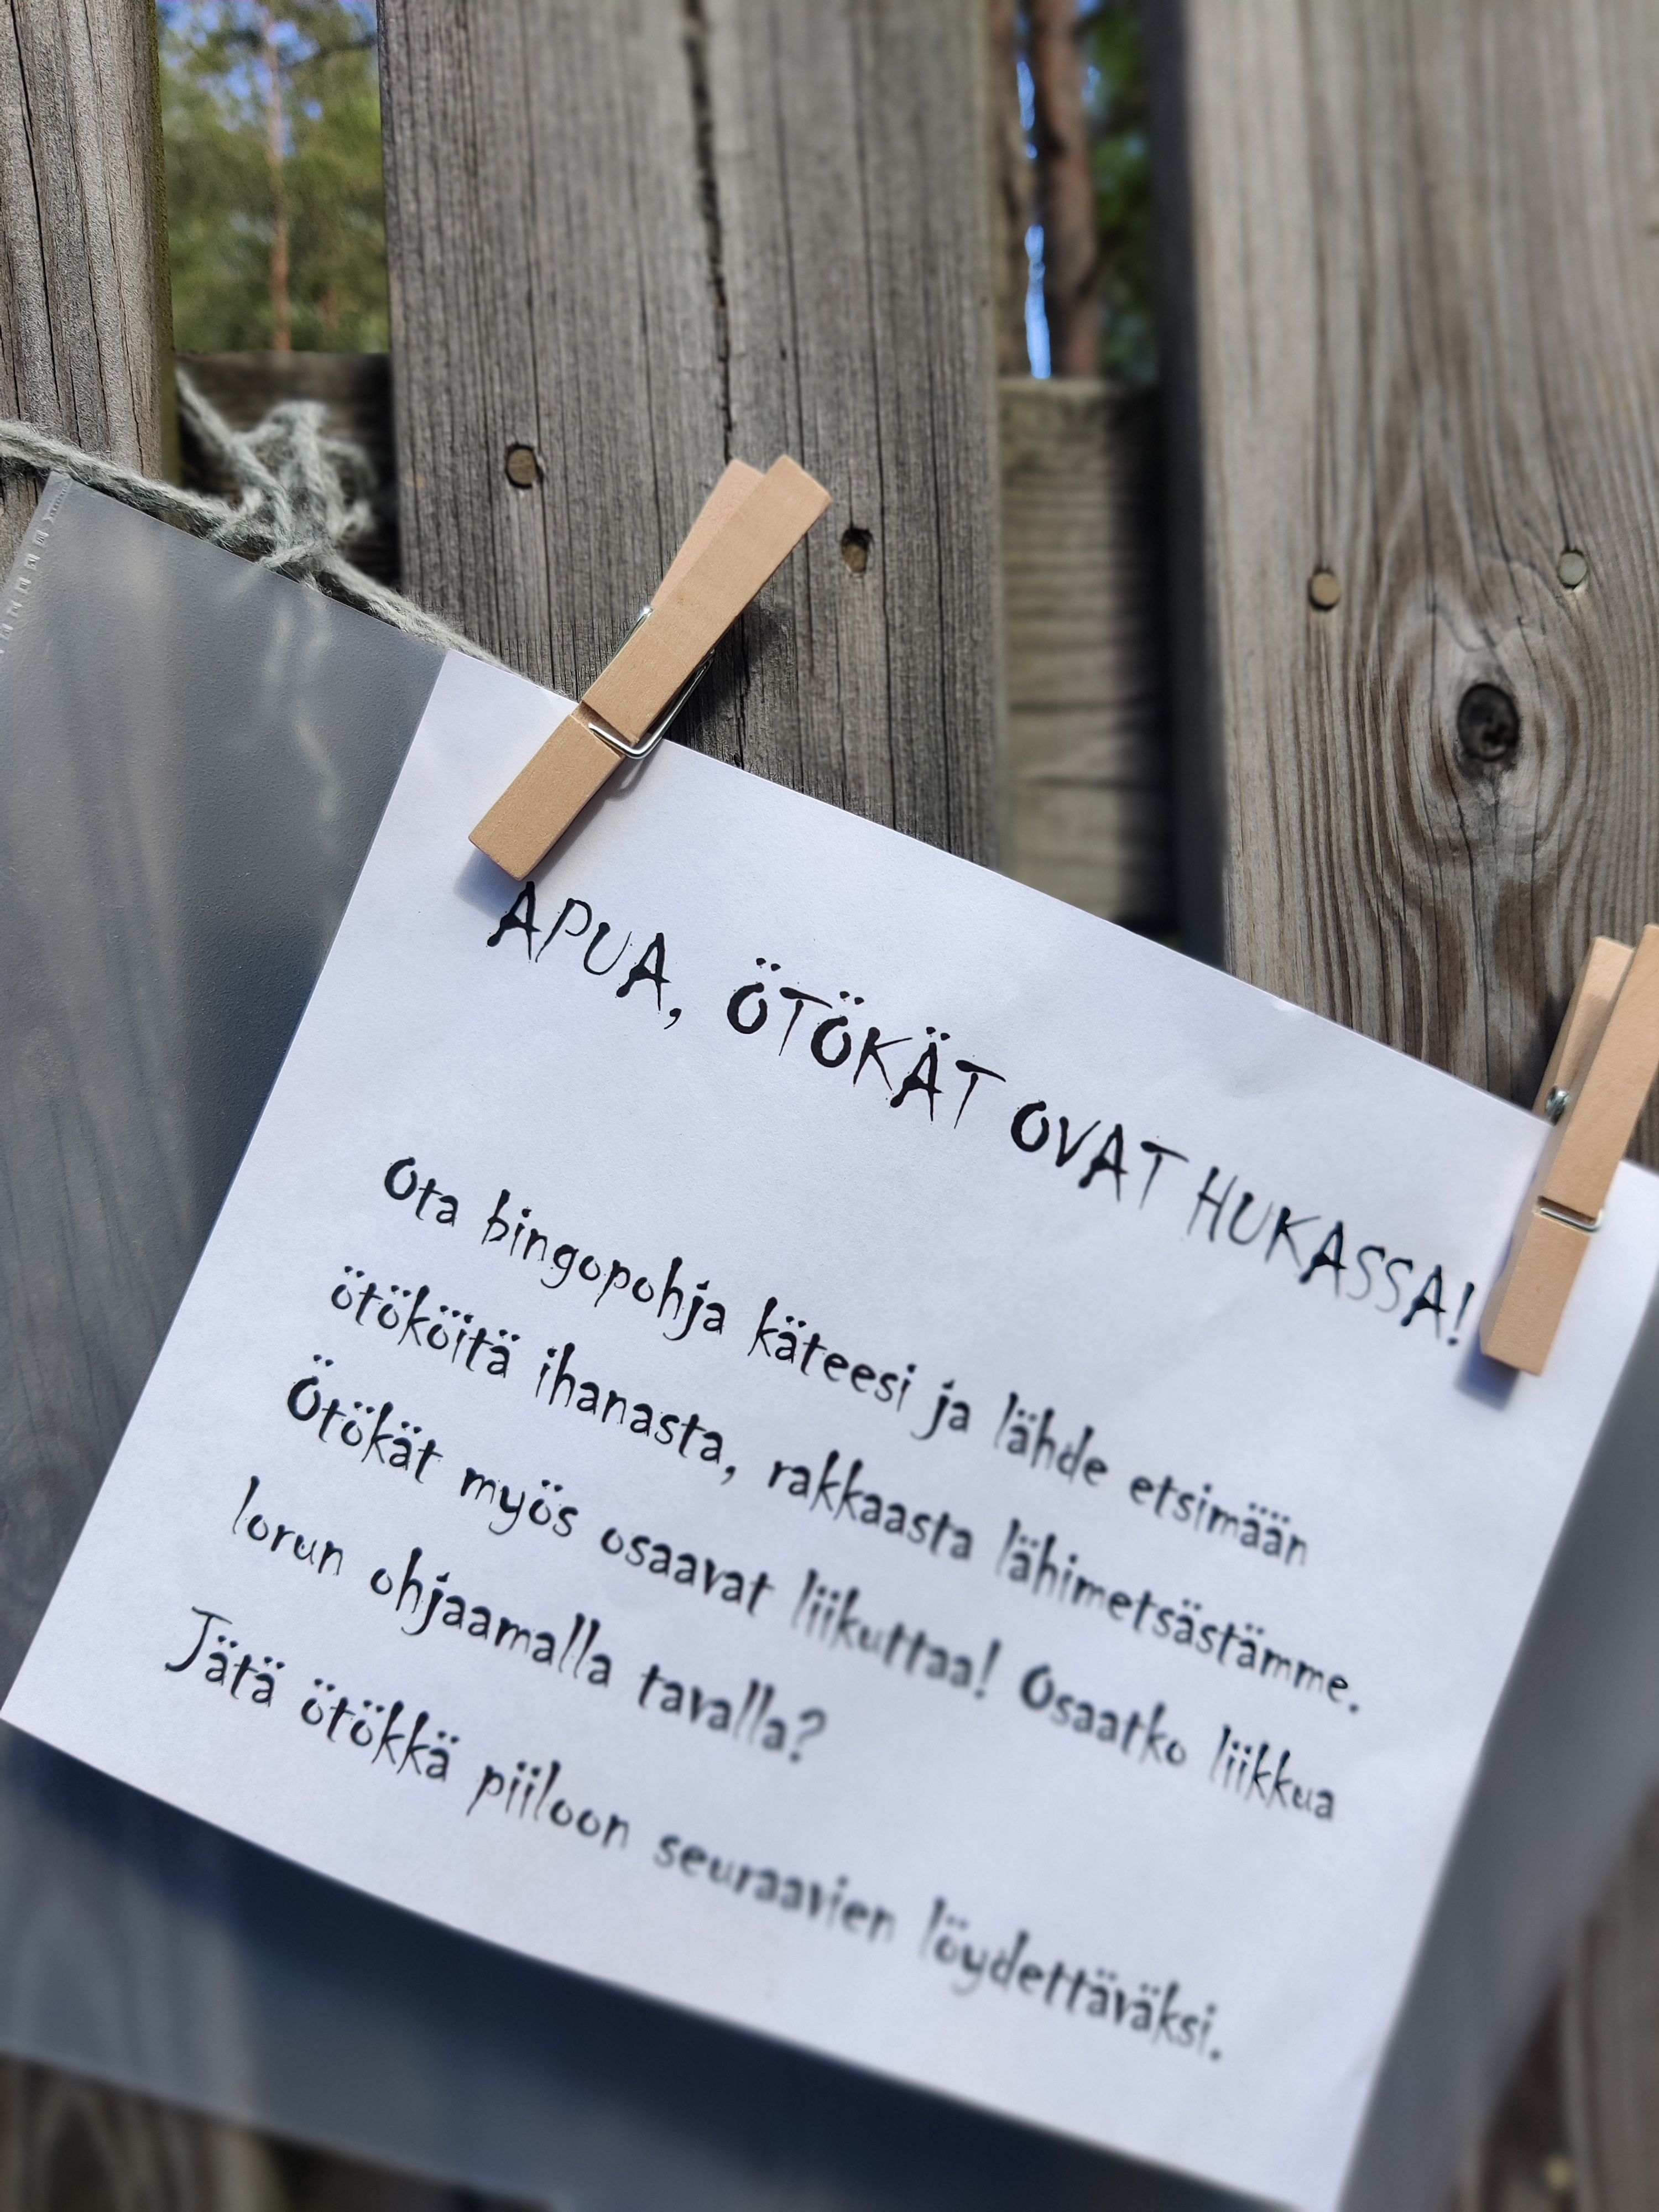 APUA, ÖTÖKÄT OVAT HUKASSA!
Ota bingopohja käteesi ja lähde etsimään
ötököitä ihanasta, rakkaasta lähimetsästämme.
Ötökät myös osaavat liikuttaa! Osaatko liikkua
lorun ohjaamalla tavalla?
Jätä ötökkä piiloon seuraavien löydettäväksi.